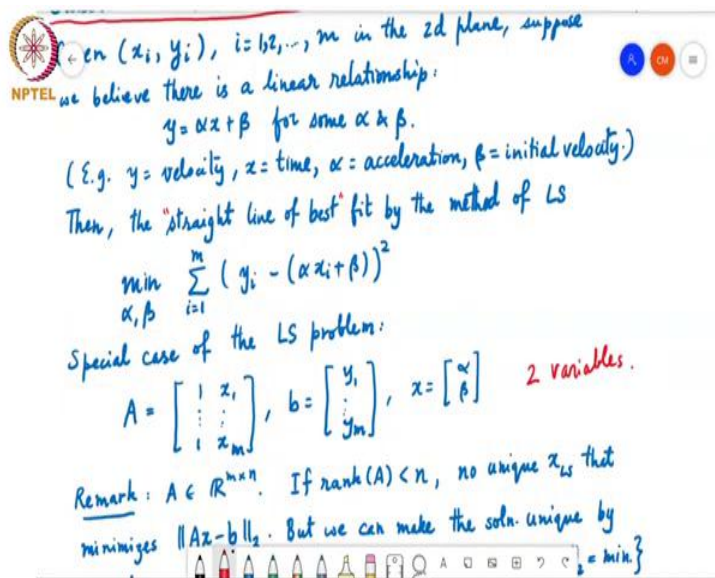 en (xi, yi), i=1,2,..., m in the 2d plane, suppose
NPTEL
we believe there is a linear relationship:
y = αx+β for some α & β.
(E.g. y = velocity, x = time, α = acceleration, β = initial velocity.)
Then, the "straight line of best" fit by the method of LS
min α, β m Σ i=1 ( yi - (α xi + β))²
Special case of the LS problem:
A = [ 1 x1 ⋮ ⋮ 1 xm ], b = [ y1 ⋮ ym ], x = [ α β ] 2 variables.
Remark: A ∈ ℝ^m×n. If rank(A) < n, no unique xLS that
minimizes ||Ax-b||₂. But we can make the soln. unique by
₂ = min.}
CM
A